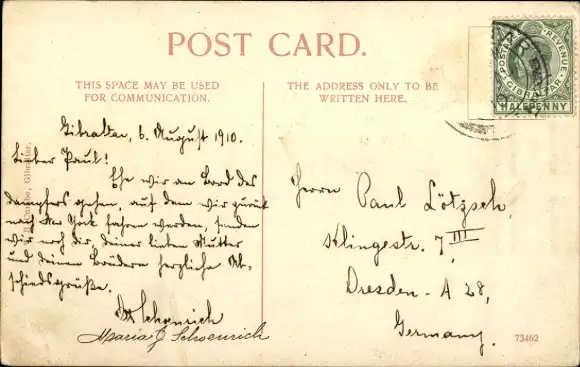 POST CARD.
THIS SPACE MAY BE USED
FOR COMMUNICATION.
THE ADDRESS ONLY TO BE
WRITTEN HERE.
POSTAGE REVENUE
GIBRALTAR
HALFPENNY
Gibraltar, 6. August 1910.
Lieber Paul!
Ehe wir an Bord des
Dampfers gehen, auf dem wir zurück
nach New York fahren werden, senden
wir noch dir, deiner lieben Mutter
und deinen Brüdern herzliche Ab-
schiedsgrüße.
Schoenrich
Maria J Schoenrich
Herrn Paul Lötzsch,
Klingestr. 7 III,
Dresden-A 28,
Germany.
73462
Gibraltar.